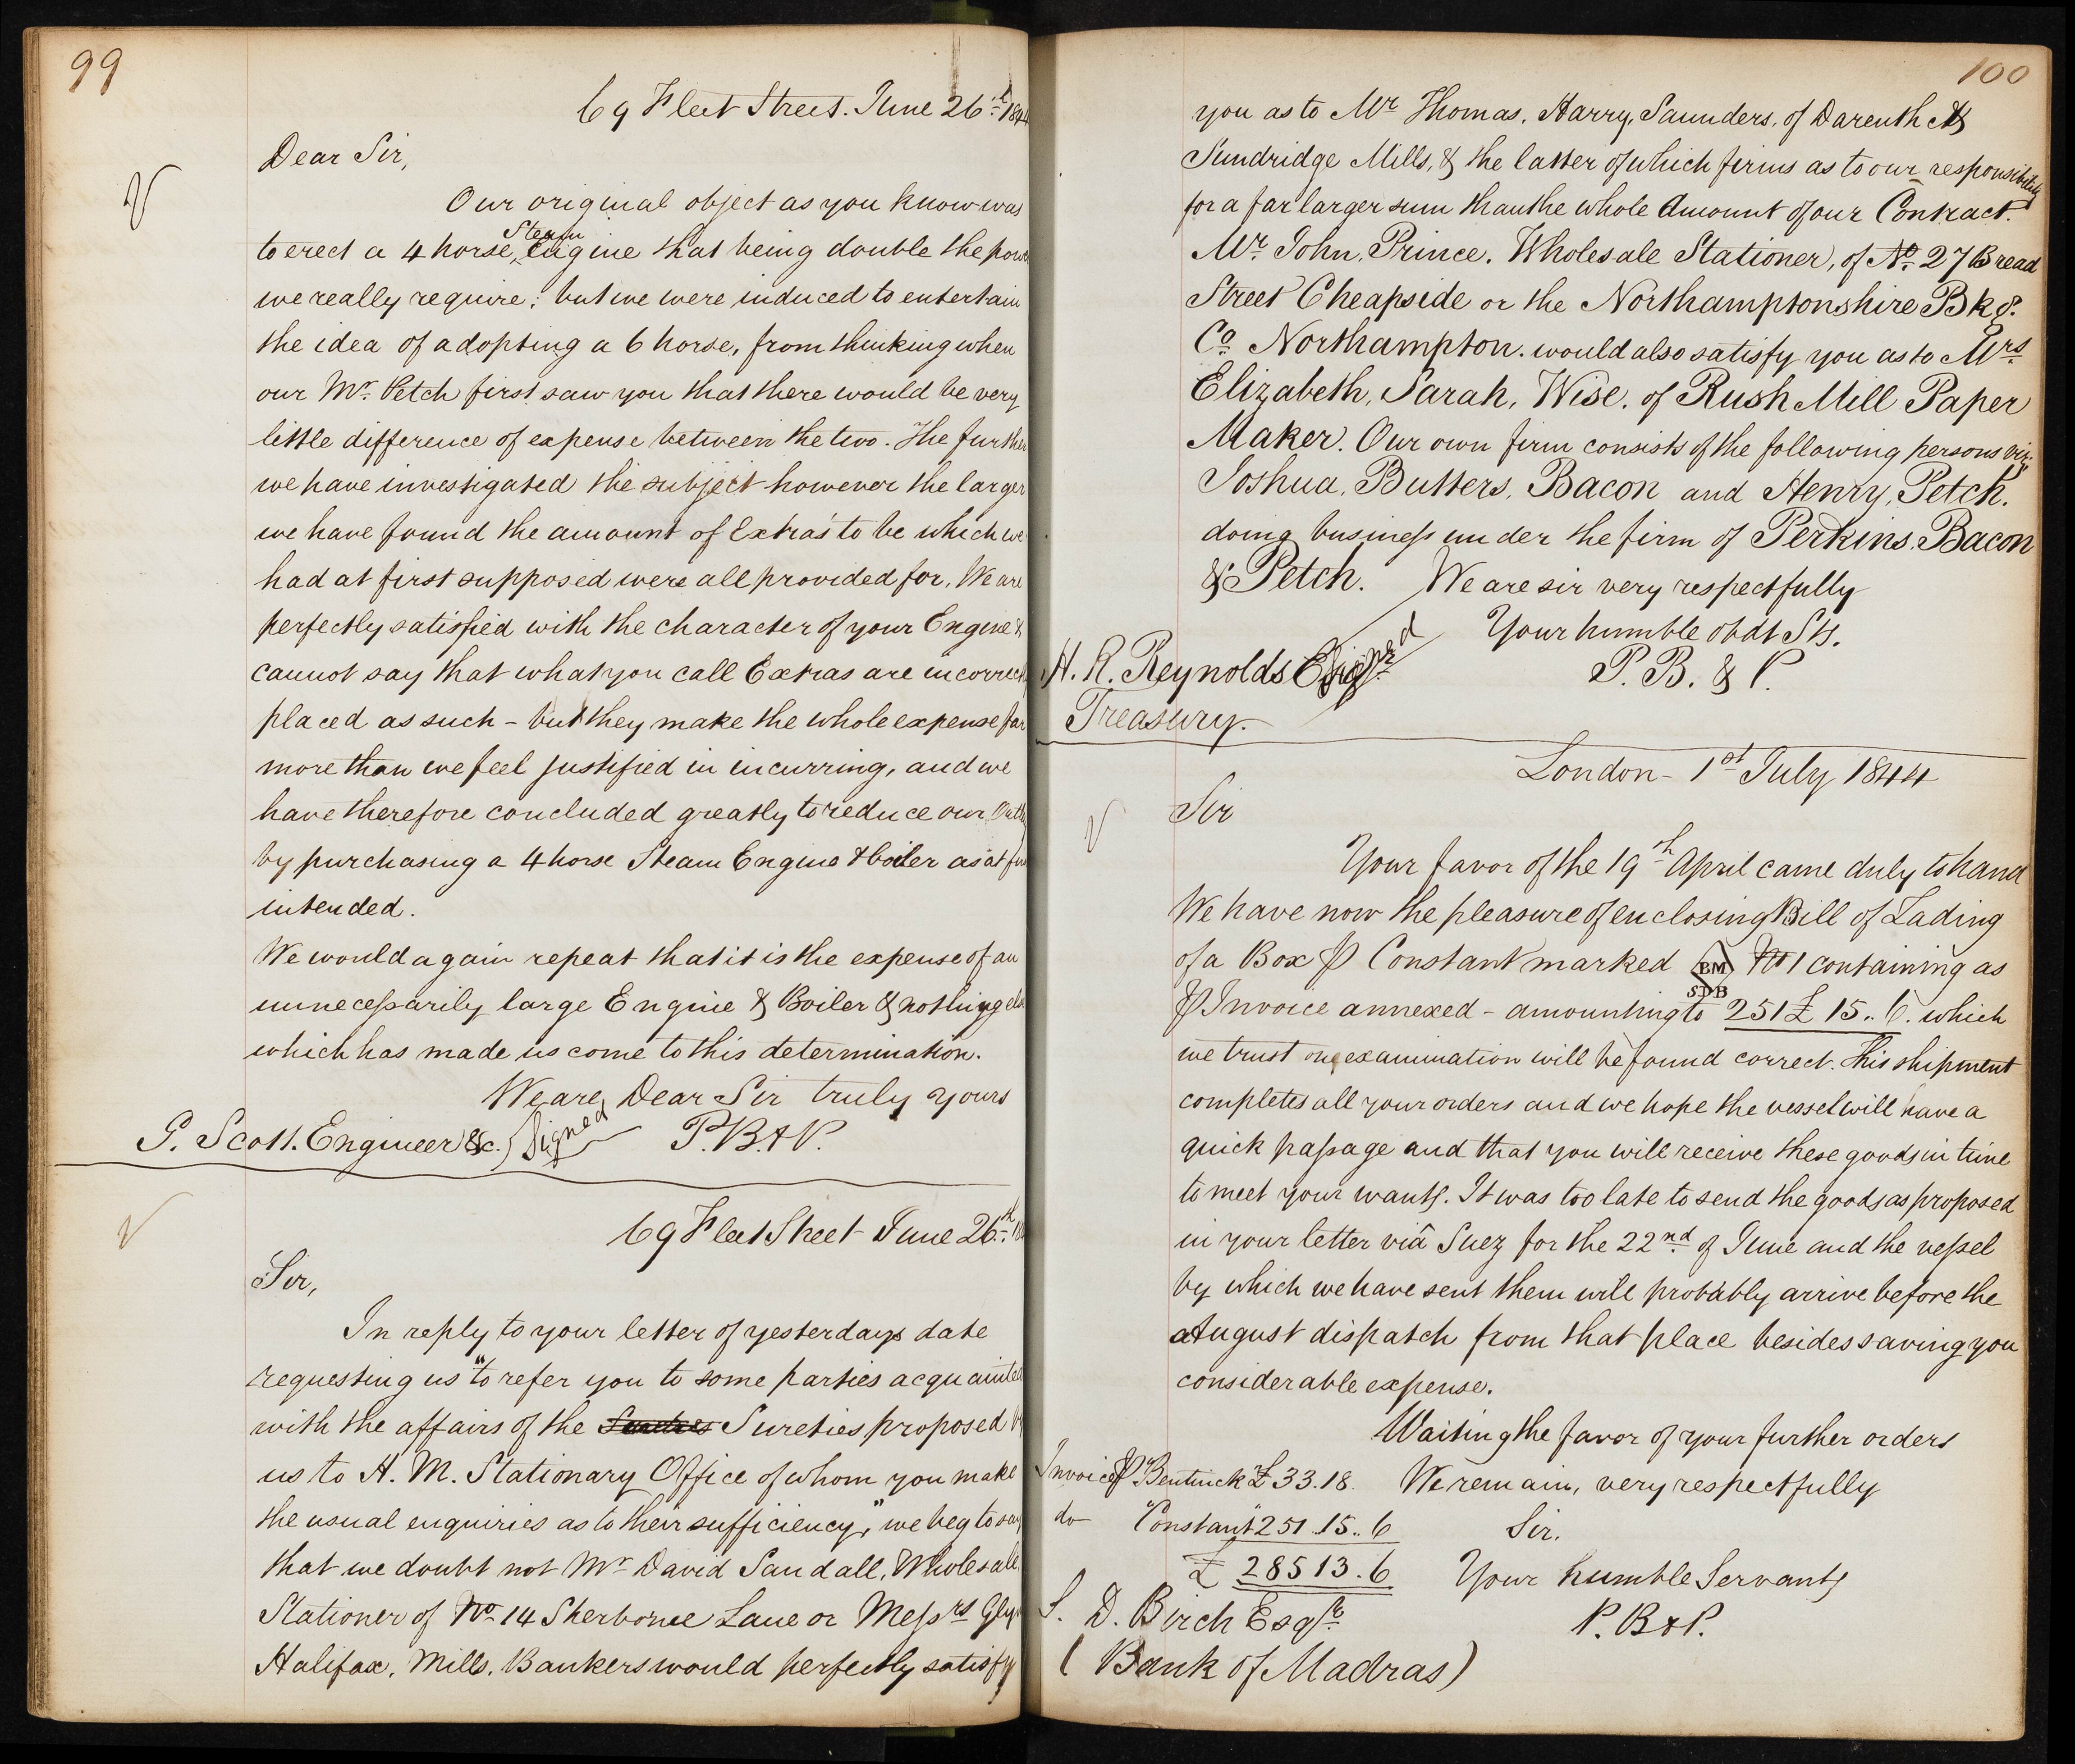 99
69 Fleet Street. June 26th 1844
Dear Sir,
Our original object as you know was
to erect a 4 horse Steam Engine that being double the power
we really require; but we were induced to entertain
the idea of adopting a 6 horse, from thinking when
our Mr. Petch first saw you that there would be very
little difference of expense between the two. The further
we have investigated the subject however the larger
we have found the amount of Extras to be which we
had at first supposed were all provided for, We are
perfectly satisfied with the character of your Engine &
cannot say that what you call Extras are incorrectly
placed as such - but they make the whole expense far
more than we feel justified in incurring, and we
have therefore concluded greatly to reduce our
by purchasing a 4 horse Steam Engine & boiler as at
intended.
We would again repeat that it is the expense of an
unnecessarily large Engine & Boiler & nothing else
which has made us come to this determination.
We are, Dear Sir truly yours
G. Scott. Engineer &c. } Signed P. B. & P.
69 Fleet Street June 26th
Sir,
In reply to your letter of yesterdays date
requesting us "to refer you to some parties acquainted
with the affairs of the Sureties proposed by
us to H. M. Stationary Office of whom you make
the usual enquiries as to their sufficiency," we beg to say
that we doubt not Mr David Sandall, Wholesale
Stationer of No. 14 Sherborne Lane or Messrs Glyn
Halifax, Mills, Bankers would perfectly satisfy
100
you as to Mr Thomas, Harry, Saunders, of Darenth &
Sundridge Mills, & the latter of which firms as to our responsibility
for a far larger sum than the whole amount of our Contract.
Mr. John, Prince. Wholesale Stationer, of No. 27 Bread
Street Cheapside or the Northamptonshire Bkg.
Co. Northampton. would also satisfy you as to Mrs
Elizabeth, Sarah, Wise. of Rush Mill Paper
Maker. Our own firm consists of the following persons viz.
Joshua, Butters, Bacon and Henry, Petch.
doing business under the firm of Perkins, Bacon
& Petch. We are sir very respectfully
Your humble obdt Sts.
H. R. Reynolds Esqr. Signed P. B. & P.
Treasury.
London - 1st July 1844
Sir
Your favor of the 19th April came duly to hand
We have now the pleasure of enclosing Bill of Lading
of a Box ⅌ Constant marked BM SDB No 1 containing as
⅌ Invoice annexed - amounting to 251£ 15.. 6. which
we trust on examination will be found correct. This shipment
completes all your orders and we hope the vessel will have a
quick passage and that you will receive these goods in time
to meet your wants. It was too late to send the goods as proposed
in your letter viâ Suez for the 22nd. of June and the vessel
by which we have sent them will probably arrive before the
August dispatch from that place besides saving you
considerable expense.
Waiting the favor of your further orders
Invoice ⅌ "Bentinck £33.18. We remain, very respectfully
do "Constant" 251..15..6 Sir.
£ 285 13. 6 Your humble Servants
S. D. Birch Esqr. P. B & P.
(Bank of Madras)